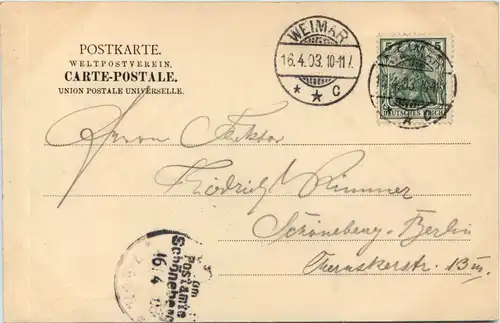 POSTKARTE.
WELTPOSTVEREIN.
CARTE-POSTALE.
UNION POSTALE UNIVERSELLE.
WEIMAR
16.4.03. 10-11V.
* * C
5 5
DEUTSCHES REICH
Herrn
Friedrich
Schöneberg-Berlin
Cheruskerstr. 13 III.
am
Postamte
Schöneberg
16/4